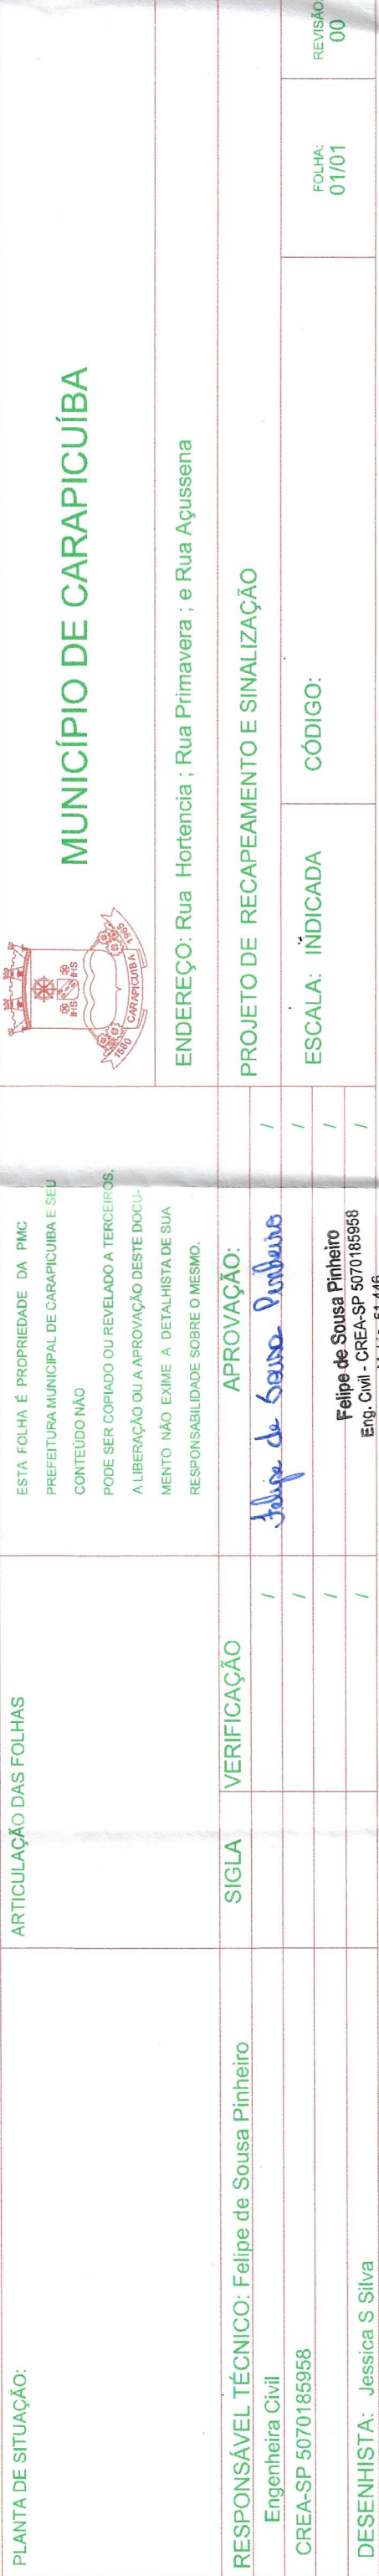 PLANTA DE SITUAÇÃO:
ARTICULAÇÃO DAS FOLHAS
ESTA FOLHA É PROPRIEDADE DA PMC
PREFEITURA MUNICIPAL DE CARAPICUIBA E SEU
CONTEÚDO NÃO
PODE SER COPIADO OU REVELADO A TERCEIROS.
A LIBERAÇÃO OU A APROVAÇÃO DESTE DOCU-
MENTO NÃO EXIME A DETALHISTA DE SUA
RESPONSABILIDADE SOBRE O MESMO.
IHS IHS
1580 CARAPICUIBA 1965
MUNICÍPIO DE CARAPICUÍBA
ENDEREÇO: Rua Hortencia ; Rua Primavera ; e Rua Açussena
PROJETO DE RECAPEAMENTO E SINALIZAÇÃO
ESCALA: INDICADA
CÓDIGO:
FOLHA:
01/01
REVISÃO:
00
RESPONSÁVEL TÉCNICO: Felipe de Sousa Pinheiro
Engenheira Civil
CREA-SP 5070185958
DESENHISTA: Jessica S Silva
SIGLA
VERIFICAÇÃO
/
/
/
/
APROVAÇÃO:
Felipe de Sousa Pinheiro
/
/
/
/
Felipe de Sousa Pinheiro
Eng. Civil - CREA-SP 5070185958